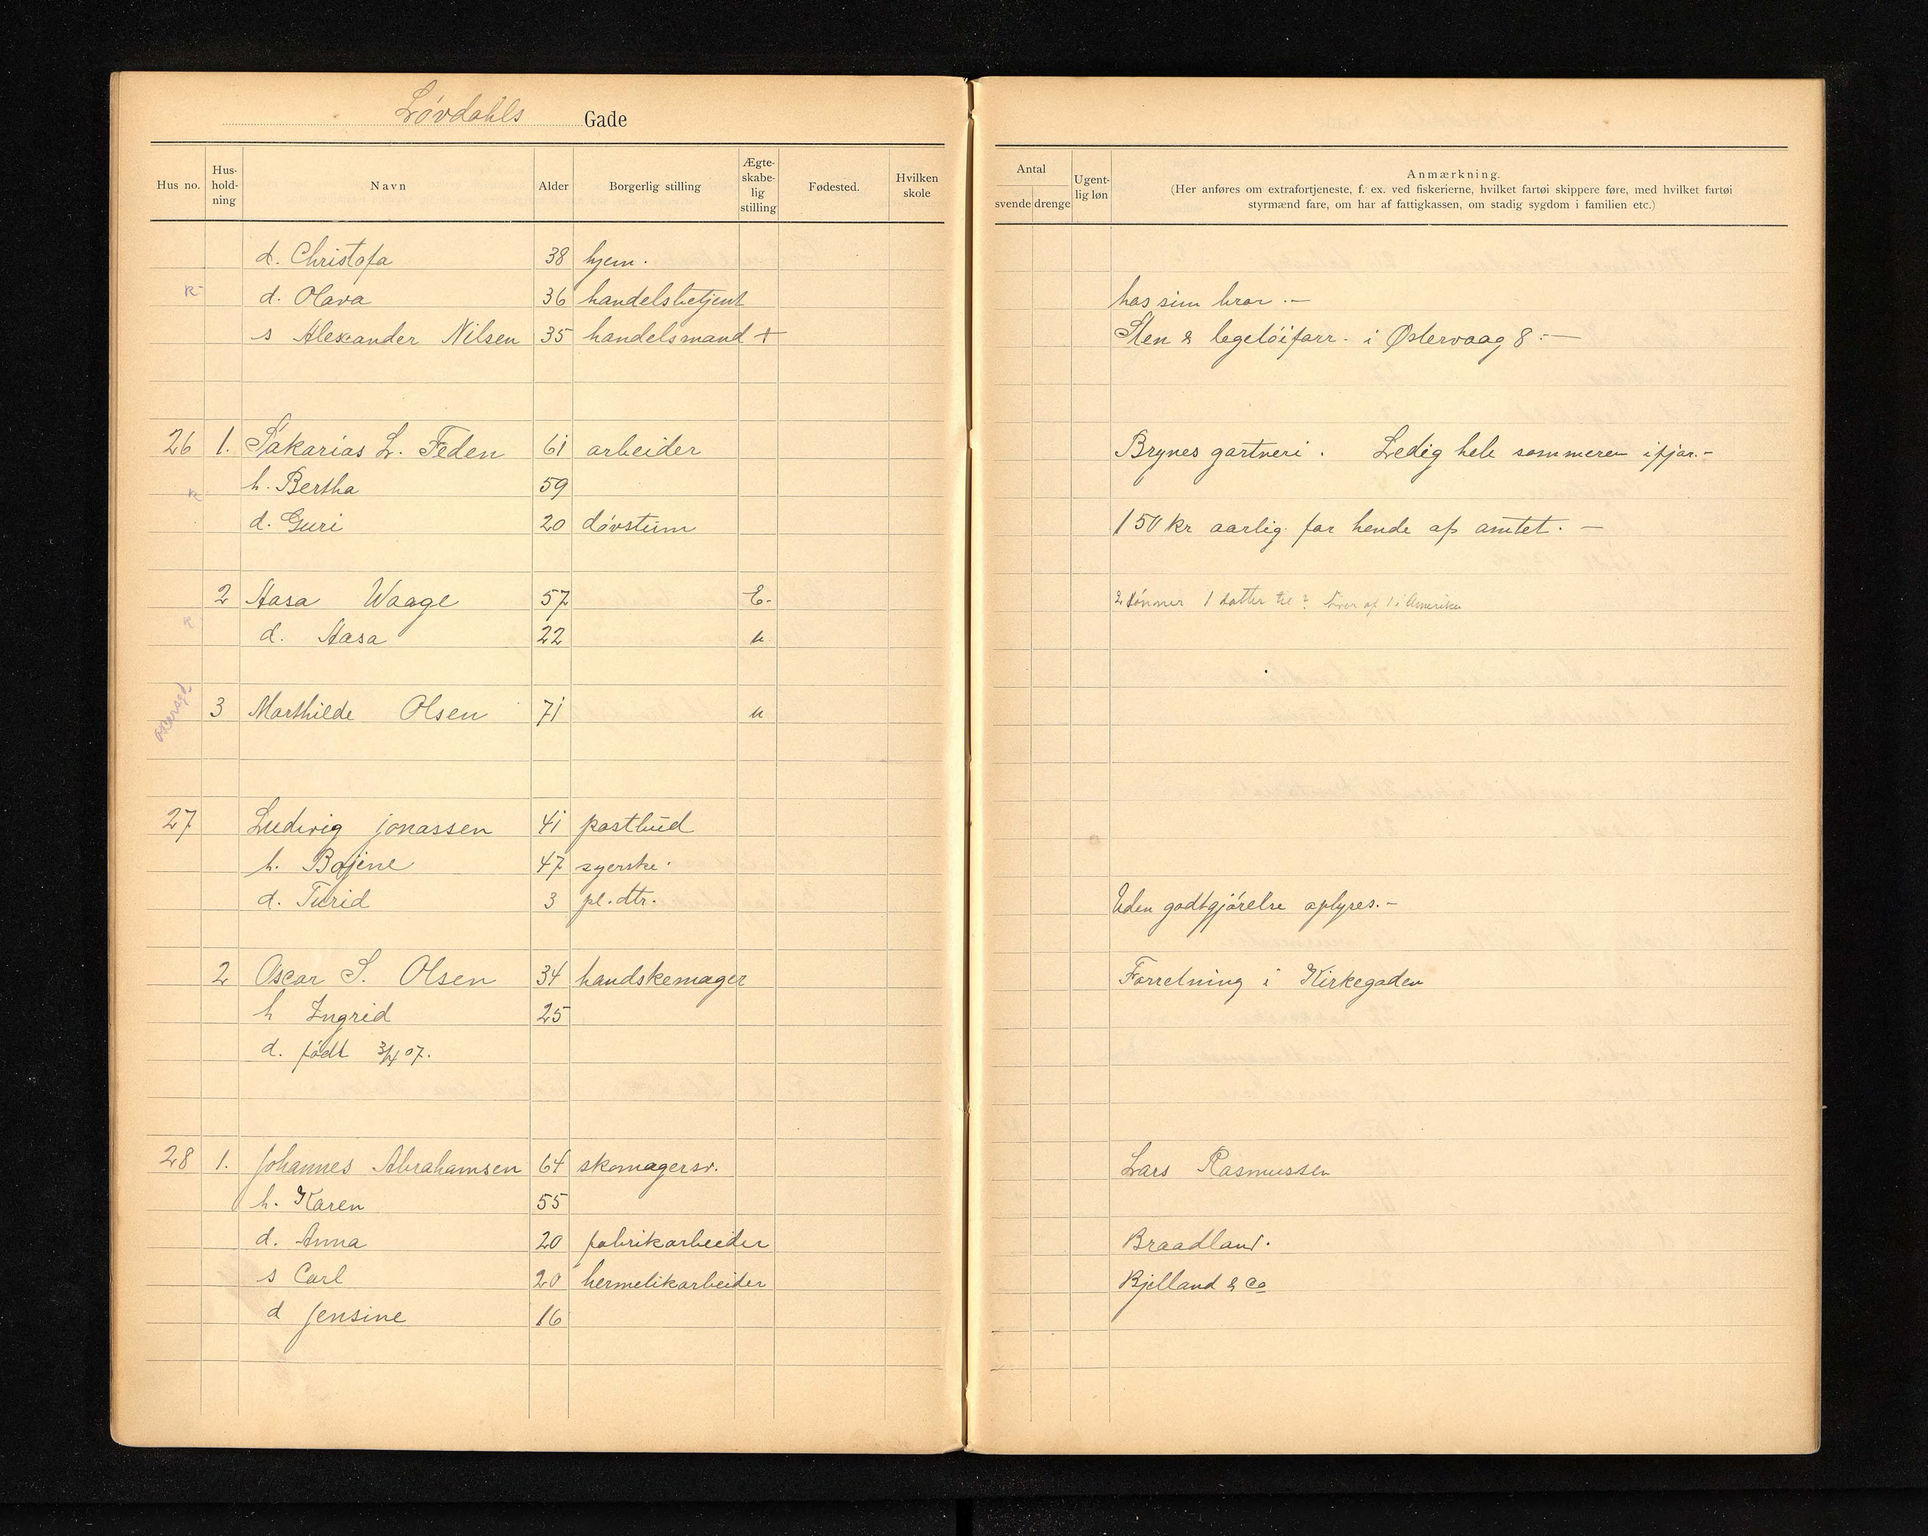 Løvdahls Gade
Hus no. Hus-hold-ning Navn Alder Borgerlig stilling Ægte-skabe-lig stilling Fødested. Hvilken skole Antal svende drenge Ugent-lig løn Anmærkning.
(Her anføres om extrafortjeneste, f. ex. ved fiskerierne, hvilket fartøi skippere føre, med hvilket fartøi
styrmænd fare, om har af fattigkassen, om stadig sygdom i familien etc.)
d. Christofa 38 hjem.
d. Olava 36 handelsbetjent hos sim bror.-
s Alexander Nilsen 35 handelsmand + Sten & legetøiforr. i Østervaag 8.-
26 1. Sakarias L. Feden 61 arbeider Brynes gartneri. Ledig hele sommeren ifjor.-
h. Bertha 59
d. Guri 20 døvstum 150 kr aarlig for hende af amtet.-
2 Aasa Waage 57 E. 2 sønner 1 datter til ? af 1 i Amerika
d. Aasa 22 u
3 Marthilde Olsen 71 u
27 Ludvig Jonassen 41 postbud
h. Bojene 47 syerske.
d. Turid 3 pl. dtr. Uden godtgjørelse oplyses.-
2 Oscar S. Olsen 34 handskemager Forretning i Kirkegaden
h Ingrid 25
d. født 3/4 07.
28 1. Johannes Abrahamsen 64 skomagersv. Lars Rasmussen
h. Karen 55
d. Anna 20 fabrikarbeider Braadland.
s Carl 20 hermetikarbeider Bjelland & Co
d Jensine 16